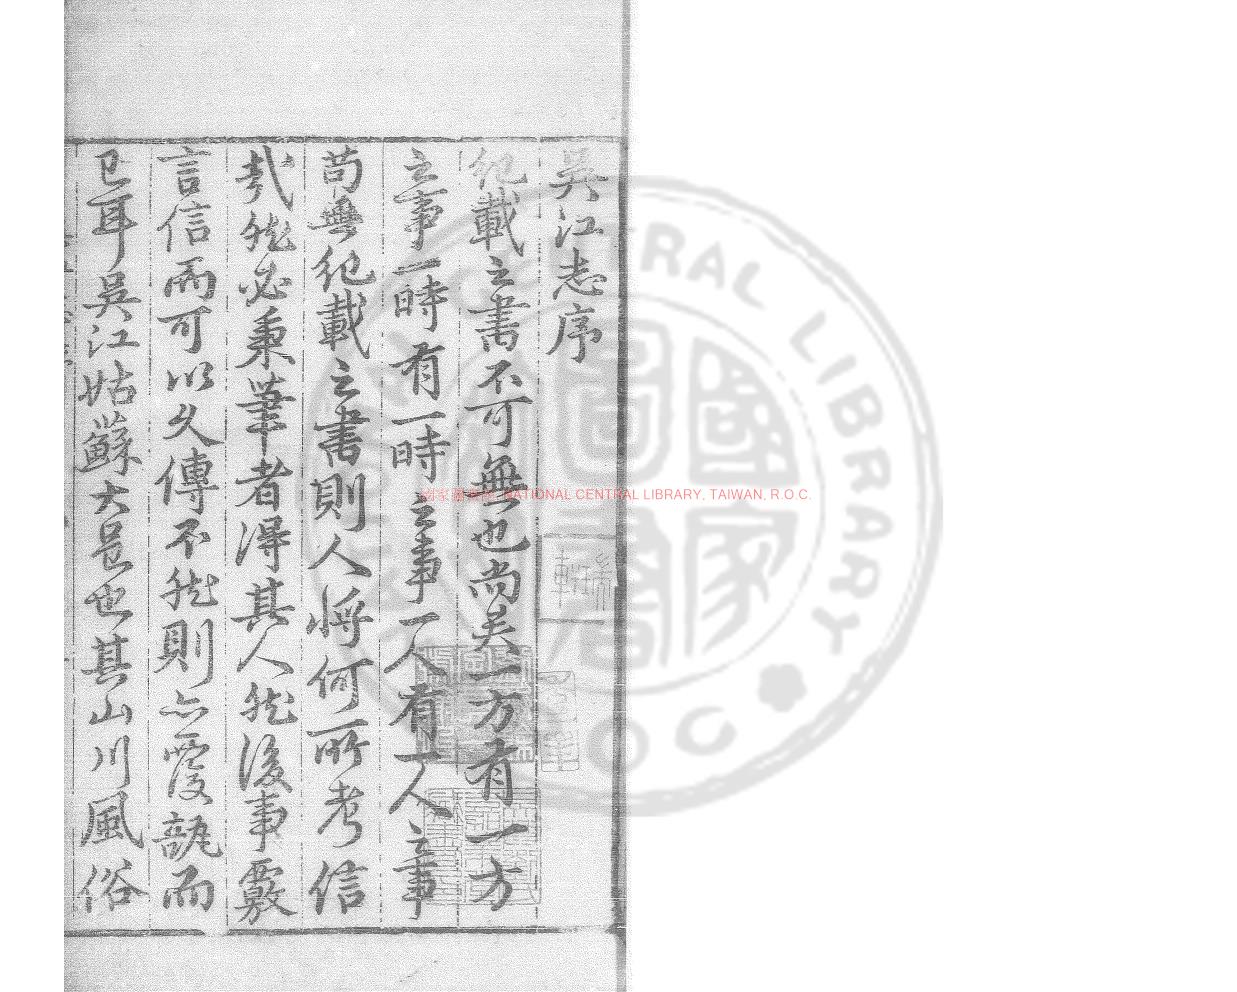 吳江志序
紀載之書不可無也尚矣一方有一方
之事一時有一時之事一人有一人之事
苟無紀載之書則人將何所考信
哉然必秉筆者得其人然後事覈
言信而可以久傳不然則亦覆瓿而
已耳吳江姑蘇大邑也其山川風俗
國家圖書館 NATIONAL CENTRAL LIBRARY, TAIWAN, R.O.C.
CENTRAL LIBRARY
ROC
國家圖書